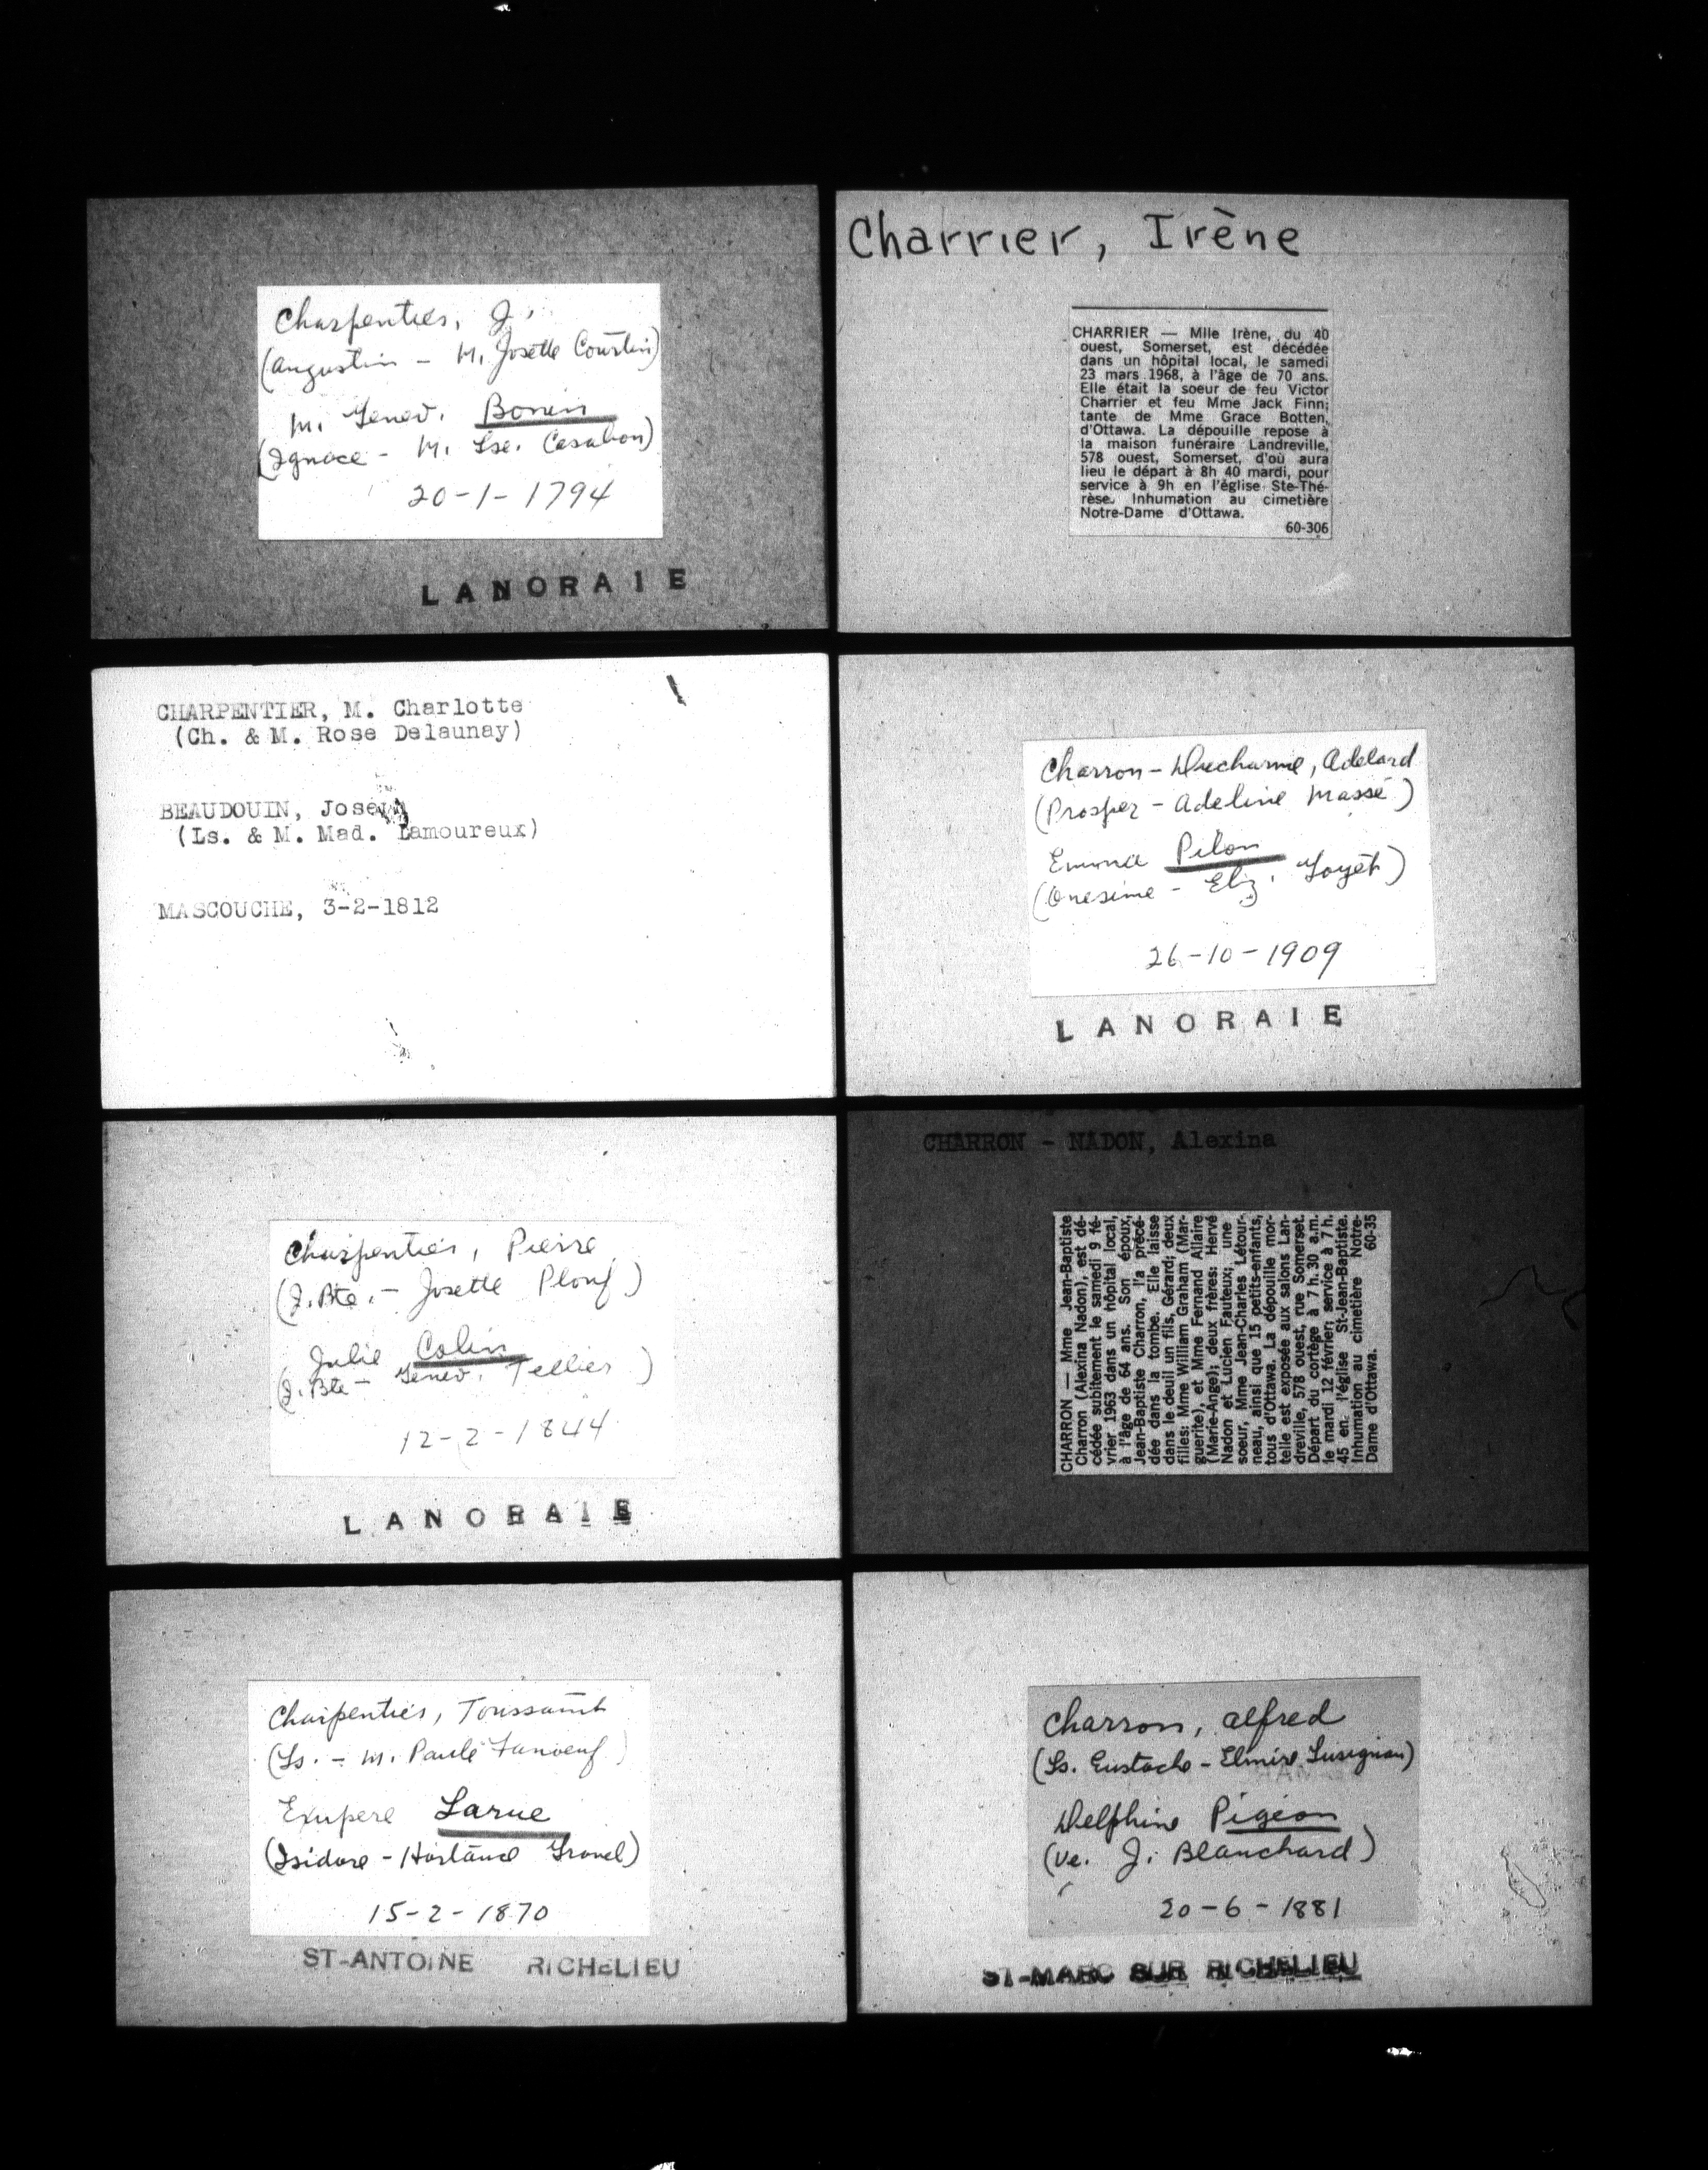 Charpentier, J.
(Augustin - M. Josette Courtin)
M. Genev. Bonin
(Ignace - M. Lse. Casabon)
20-1-1794
LANORAIE
CHARPENTIER, M. Charlotte
(Ch. & M. Rose Delaunay)
BEAUDOUIN, Joseph
(Ls. & M. Mad. Lamoureux)
MASCOUCHE, 3-2-1812
Charpentier, Pierre
(J. Bte. - Josette Plouf)
Julie Colin
(J. Bte - Genev. Tellier)
12-2-1844
LANORAIE
Charpentier, Toussaint
(Ls. - M. Paule Fanoeuf)
Exupere Larue
(Isidore - Hortance Gravel)
15-2-1870
ST-ANTOINE RICHELIEU
Charrier, Irène
CHARRIER — Mlle Irène, du 40
ouest, Somerset, est décédée
dans un hôpital local, le samedi
23 mars 1968, à l'âge de 70 ans.
Elle était la soeur de feu Victor
Charrier et feu Mme Jack Finn;
tante de Mme Grace Botten,
d'Ottawa. La dépouille repose à
la maison funéraire Landreville,
578 ouest, Somerset, d'où aura
lieu le départ à 8h 40 mardi, pour
service à 9h en l'église Ste-Thé-
rèse. Inhumation au cimetière
Notre-Dame d'Ottawa.
60-306
Charron - Ducharme, Adelard
(Prosper - Adeline Massé)
Emma Pilon
(Onesime - Eliz. Goyet)
26-10-1909
LANORAIE
CHARRON - NADON, Alexina
CHARRON — Mme Jean-Baptiste
Charron (Alexina Nadon), est dé-
cédée subitement le samedi 9 fé-
vrier 1963 dans un hôpital local,
à l'âge de 64 ans. Son époux,
Jean-Baptiste Charron, l'a précé-
dée dans la tombe. Elle laisse
dans le deuil un fils, Gérard; deux
filles: Mme William Graham (Mar-
guerite), et Mme Fernand Allaire
(Marie-Ange); deux frères: Hervé
Nadon et Lucien Fauteux; une
soeur, Mme Jean-Charles Létour-
neau, ainsi que 15 petits-enfants,
tous d'Ottawa. La dépouille mor-
telle est exposée aux salons Lan-
dreville, 578 ouest, rue Somerset.
Départ du cortège à 7 h. 30 a.m.
le mardi 12 février; service à 7 h.
45 en l'église St-Jean-Baptiste.
Inhumation au cimetière Notre-
Dame d'Ottawa. 60-35
Charron, Alfred
(Ls. Eustache - Elmire Lusignan)
Delphine Pigeon
(Ve. J. Blanchard)
20-6-1881
ST-MARC SUR RICHELIEU